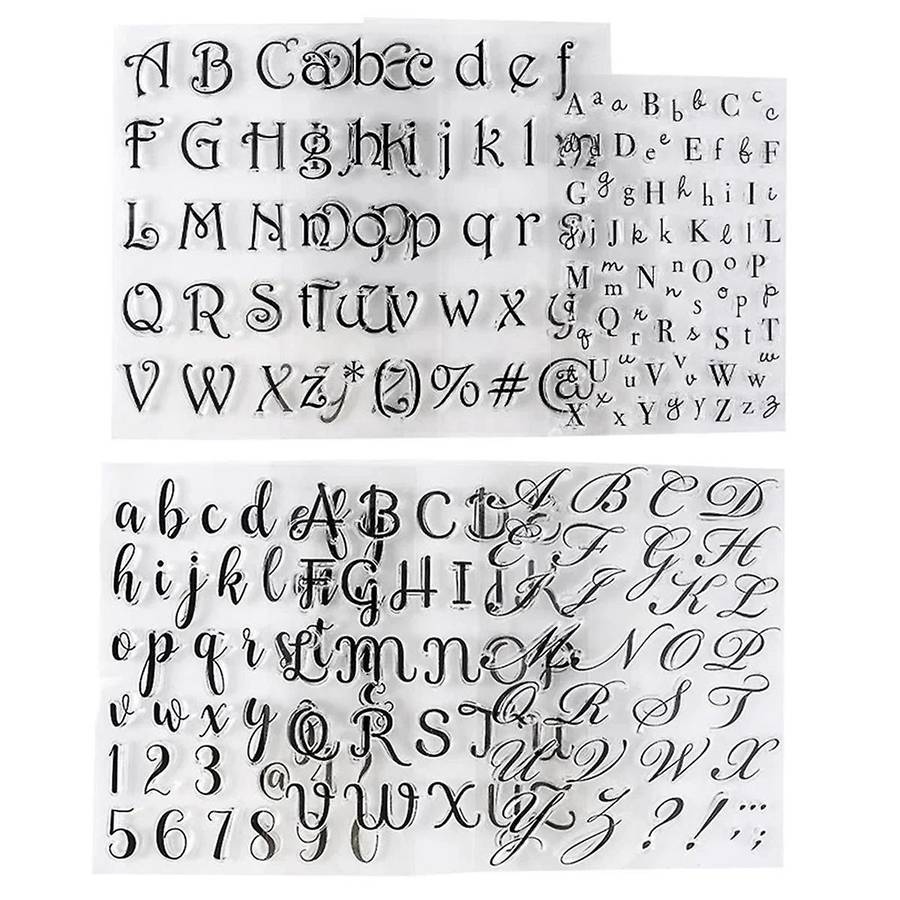 A B C a b c d e f
F G H g h i j k l m
L M N n o p q r s
Q R S t T u U v w x y
V W X z * ( ) % # @
A a a B b b C c c
D e e E f f F
G g g H h h i I i
j J k k K l l L
M m m N n n O o o P
q Q r r R s s S t T p p
U u u V v v W w w
X x x Y y y Z z z
a b c d
h i j k l
o p q r s t
v w x y
1 2 3 @
5 6 7 8 9
A B C D
F G H I
L M N O
Q R S T
V W X
A B C D
E F G H
I J K L
M N O P
Q R S T
U V W X
Y Z ? ! , ;